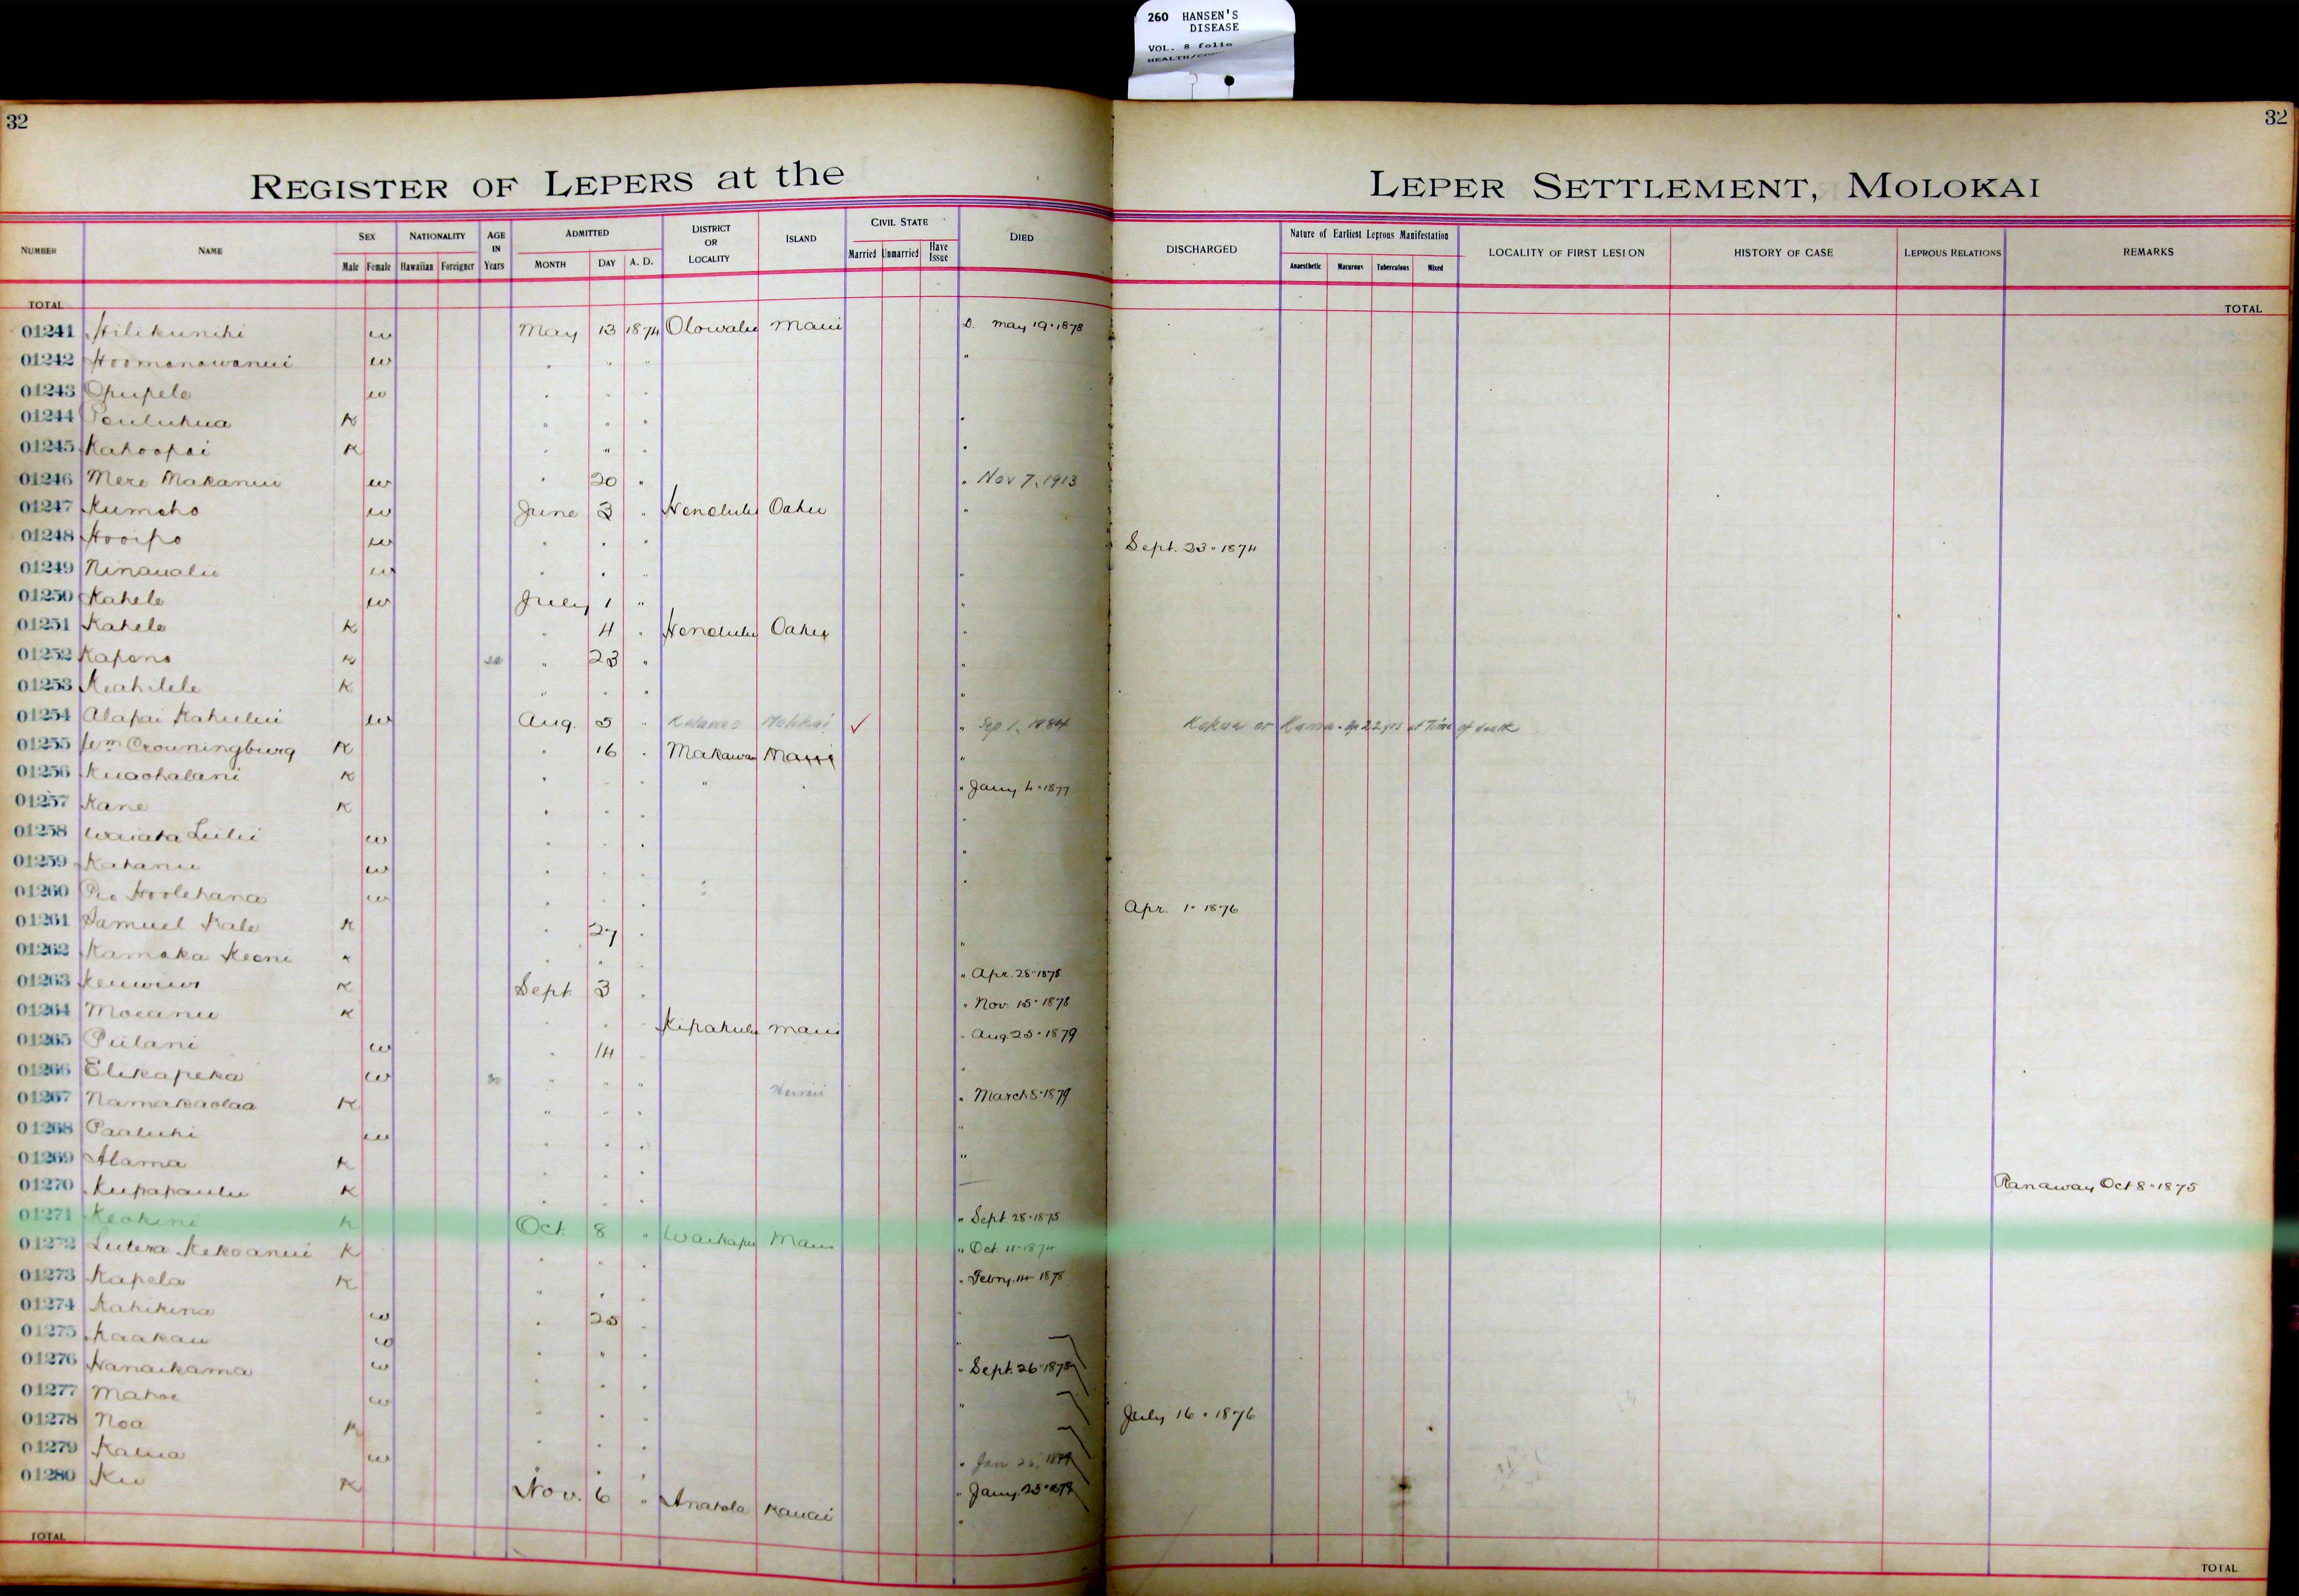 260 HANSEN'S
DISEASE
VOL. 8 folio
32
32
REGISTER OF LEPERS at the LEPER SETTLEMENT, MOLOKAI
NUMBER NAME SEX NATIONALITY AGE IN Years ADMITTED DISTRICT OR LOCALITY ISLAND CIVIL STATE DIED DISCHARGED Nature of Earliest Leprous Manifestation LOCALITY OF FIRST LESION HISTORY OF CASE LEPROUS RELATIONS REMARKS
Male Female Hawaiian Foreigner MONTH DAY A. D. Married Unmarried Have Issue Anaesthetic Macurous Tuberculous Mixed
TOTAL TOTAL
01241 Hilikunihi w May 13 1874 Olowalu Maui D. May 19 - 1878
01242 Hoomanawanui w " " " "
01243 Opupele w " " "
01244 Pauluhua K " " " "
01245 Kahoopai K " " " "
01246 Mere Makanui w " 20 " " Nov 7, 1913
01247 Kumeho w June 3 " Honolulu Oahu "
01248 Hooipo w " " " Sept. 23 - 1874
01249 Ninaualu w " " " "
01250 Kahele w July 1 " "
01251 Kahele K " 4 " Honolulu Oahu "
01252 Kapono K " 23 " "
01253 Keahilele K " " " "
01254 Alapai Kahului w Aug. 5 " Molokai ✓ " Sep 1, 1884 Kokua or Kamaa. Age 22 yrs at Time of death
01255 Wm Crowningburg K " 16 " Makawao Maui "
01256 Kuaohalani K " " " " " " Jany. 4 - 1877
01257 Kane K " " " "
01258 Waiaha Luilii w " " " "
01259 Kahanu w " " " "
01260 Hoolehana w " " " Apr. 1 - 1876
01261 Samuel Kale K " 27 " "
01262 Kamaka Keoni K " " " Apr. 28 - 1878
01263 K Sept. 3 " " Nov. 15 - 1878
01264 Moeanu K " " " Kipahulu Maui " Aug. 25 - 1879
01265 Piilani w " 14 " "
01266 Elikapeka w " " " Hawaii " March 5 - 1879
01267 Namakaolaa K " " " "
01268 Paaluhi w " " " "
01269 Alama K " " "
01270 Kupapaulu K " " " " Sept. 28 - 1875 Ranaway Oct 8 - 1875
01271 Keohini K Oct. 8 " Waikapu Maui " Oct. 11 - 1874
01272 Lutera Kekoanui K " " " " Febry. 14 - 1878
01273 Kapela K " " "
01274 Kahikina w " 25 " "
01275 Kaakau w " " " " Sept. 26 - 1878
01276 Nanaikama w " " " "
01277 Mahoe w " " " July 16 - 1876
01278 Noa K " " "
01279 Kalua w " " " " Jany. 25 - 1879
01280 Ku K Nov. 6 " Anahola Kauai "
TOTAL TOTAL